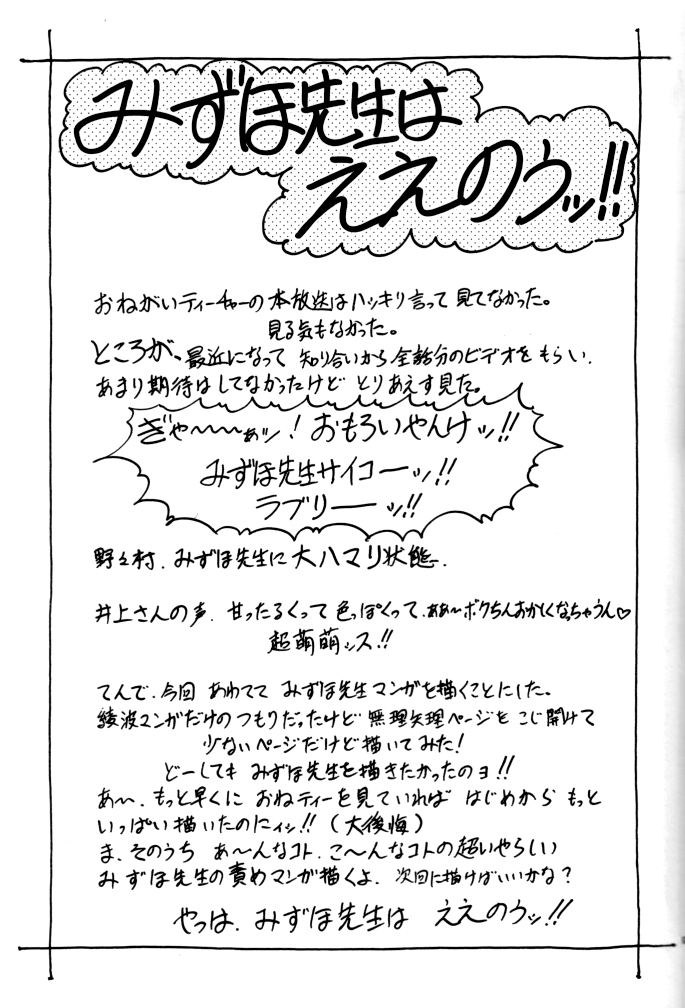 みずほ先生は
ええのうッ!!
おねがいティーチャーの本放送はハッキリ言って見てなかった。
見る気もなかった。
ところが、最近になって知り合いから全話分のビデオをもらい、
あまり期待はしてなかったけどとりあえず見た。
ぎゃ〜〜〜ぁッ!おもろいやんけッ!!
みずほ先生サイコーッ!!
ラブリーーッ!!
野々村、みずほ先生に大ハマリ状態。
井上さんの声、甘ったるくって色っぽくって、ああ〜ボクちんおかしくなっちゃうん♡
超萌萌ッス!!
てんで、今回あわててみずほ先生マンガを描くことにした。
綾波マンガだけのつもりだったけど無理矢理ページをこじ開けて
少ないページだけど描いてみた!
どーしてもみずほ先生を描きたかったのヨ!!
あ〜、もっと早くにおねティーを見ていればはじめからもっと
いっぱい描いたのにィッ!!(大後悔)
ま、そのうちあ〜んなコト、こ〜んなコトの超いやらしい
みずほ先生の責めマンガ描くよ、次回に描けばいいかな?
やっは、みずほ先生はええのうッ!!